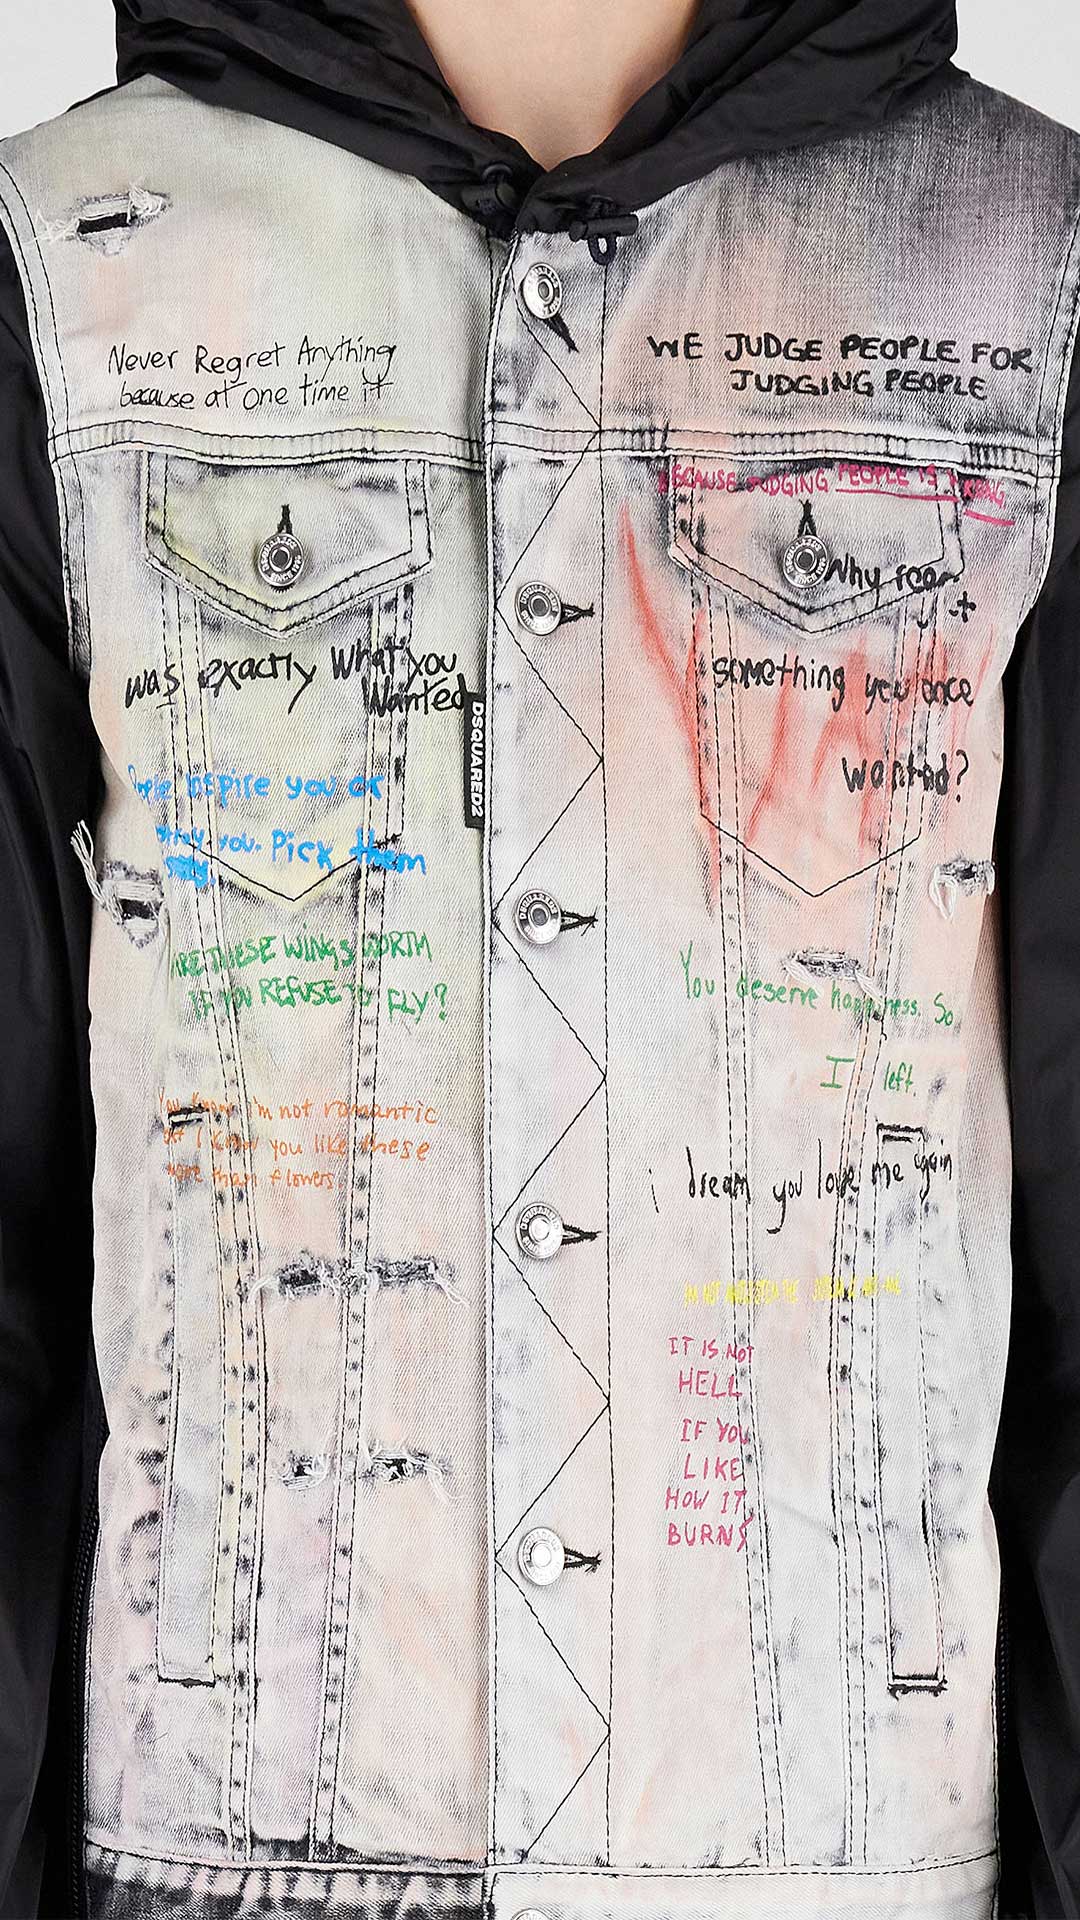 Never Regret Anything
because at one time it
was exactly what you
Wanted
DSQUARED2
People inspire you or
you. Pick them
ARE THESE WINGS WORTH
IF YOU REFUSE TO FLY?
You know i'm not romantic
but I know you like these
more than flowers.
WE JUDGE PEOPLE FOR
JUDGING PEOPLE
BECAUSE JUDGING PEOPLE IS
Why
something you once
wanted?
You deserve happiness. So
I left.
i dream you love me again
IT IS NOT
HELL
IF YOU
LIKE
HOW IT
BURNS